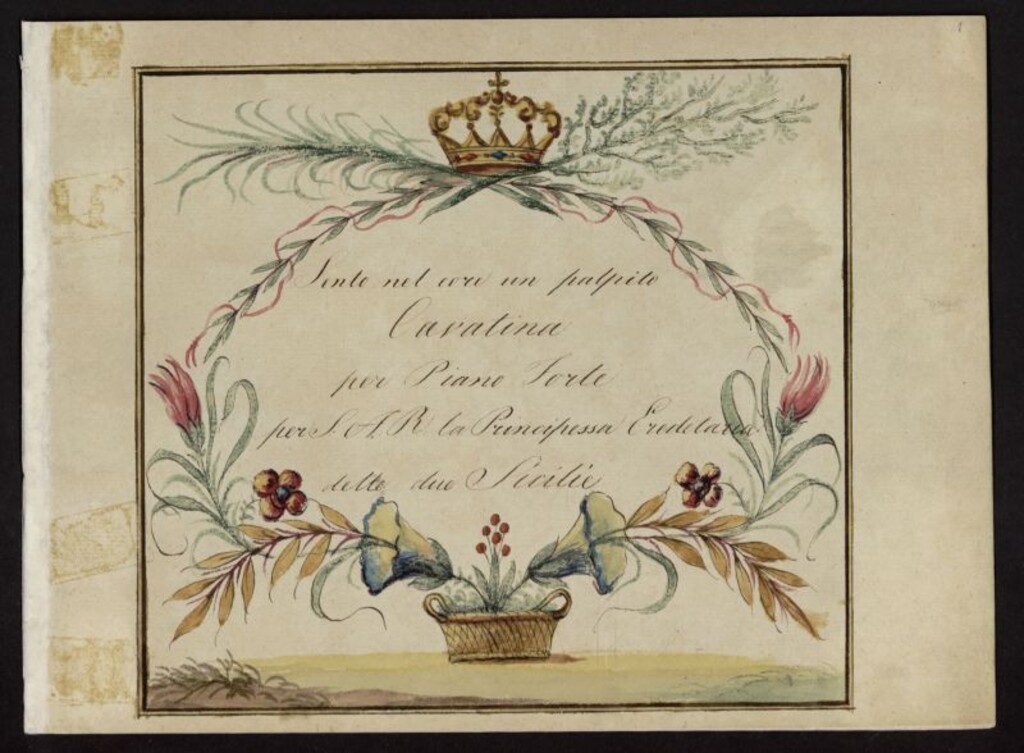 Sento nel core un palpito
Cavatina
per Piano Forte
per S. A. R. la Principessa Ereditaria
delle due Sicilie